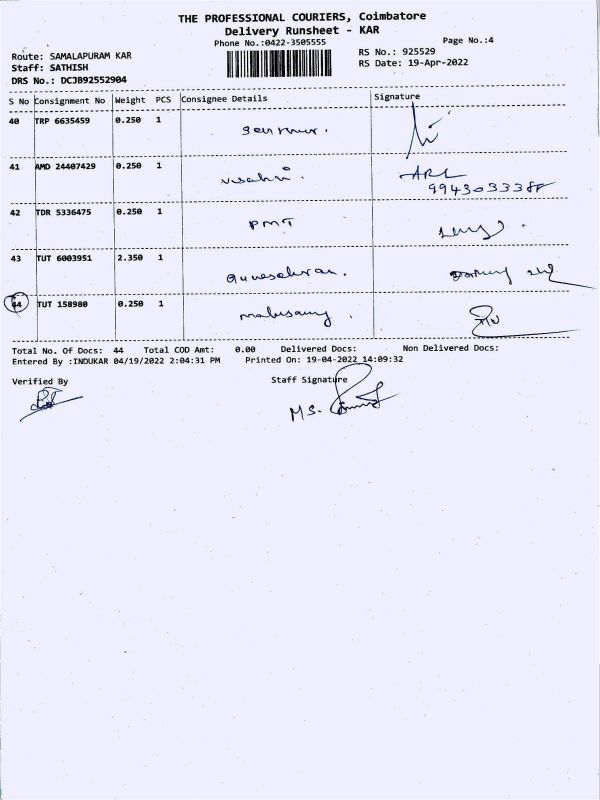 THE PROFESSIONAL COURIERS, Coimbatore
Delivery Runsheet - KAR
Phone No.:0422-3505555 Page No.:4
Route: SAMALAPURAM KAR RS No.: 925529
Staff: SATHISH RS Date: 19-Apr-2022
DRS No.: DCJB92552904
S No Consignment No Weight PCS Consignee Details Signature
40 TRP 6635459 0.250 1
41 AMD 24407429 0.250 1 ARL
99430333
42 TDR 5336475 0.250 1 PMT
43 TUT 6003951 2.350 1
44 TUT 158980 0.250 1
Total No. Of Docs: 44 Total COD Amt: 0.00 Delivered Docs: Non Delivered Docs:
Entered By :INDUKAR 04/19/2022 2:04:31 PM Printed On: 19-04-2022 14:09:32
Verified By Staff Signature
M S.